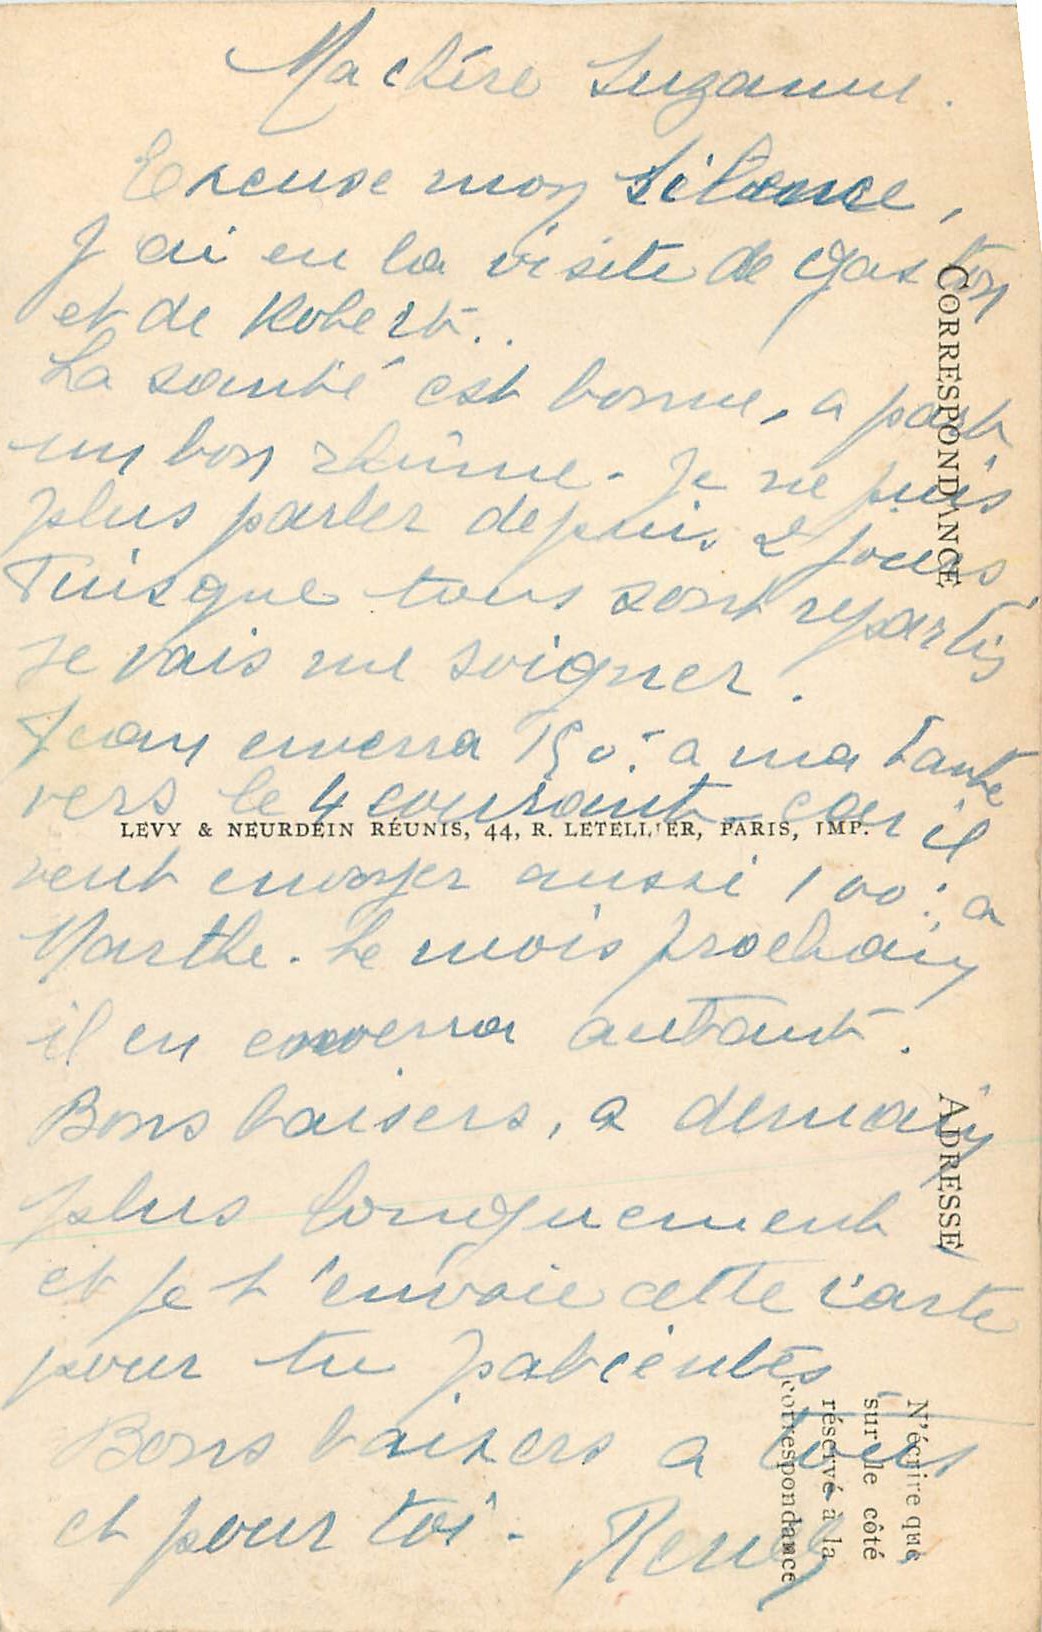 Ma chère Suzanne.
Excuse mon silence,
J'ai eu la visite de Gaston
et de Robert..
La santé est bonne, a part
un bon rhûme. Je ne puis
plus parler depuis 2 jours
Puisque tous sont repartis
je vais me soigner.
Jean enverra 150: a ma tante
vers le 4 courant car il
LEVY & NEURDEIN RÉUNIS, 44, R. LETELLIER, PARIS, IMP.
veut envoyer aussi 100: a
Marthe. Le mois prochain
il en enverra autant.
Bons baisers, a demain
plus longuement
et je t'envoie cette carte
pour tu patientes
Bons baisers a tous
et pour toi.
CORRESPONDANCE
ADRESSE
N'écrire que
sur le côté
réservé à la
correspondance